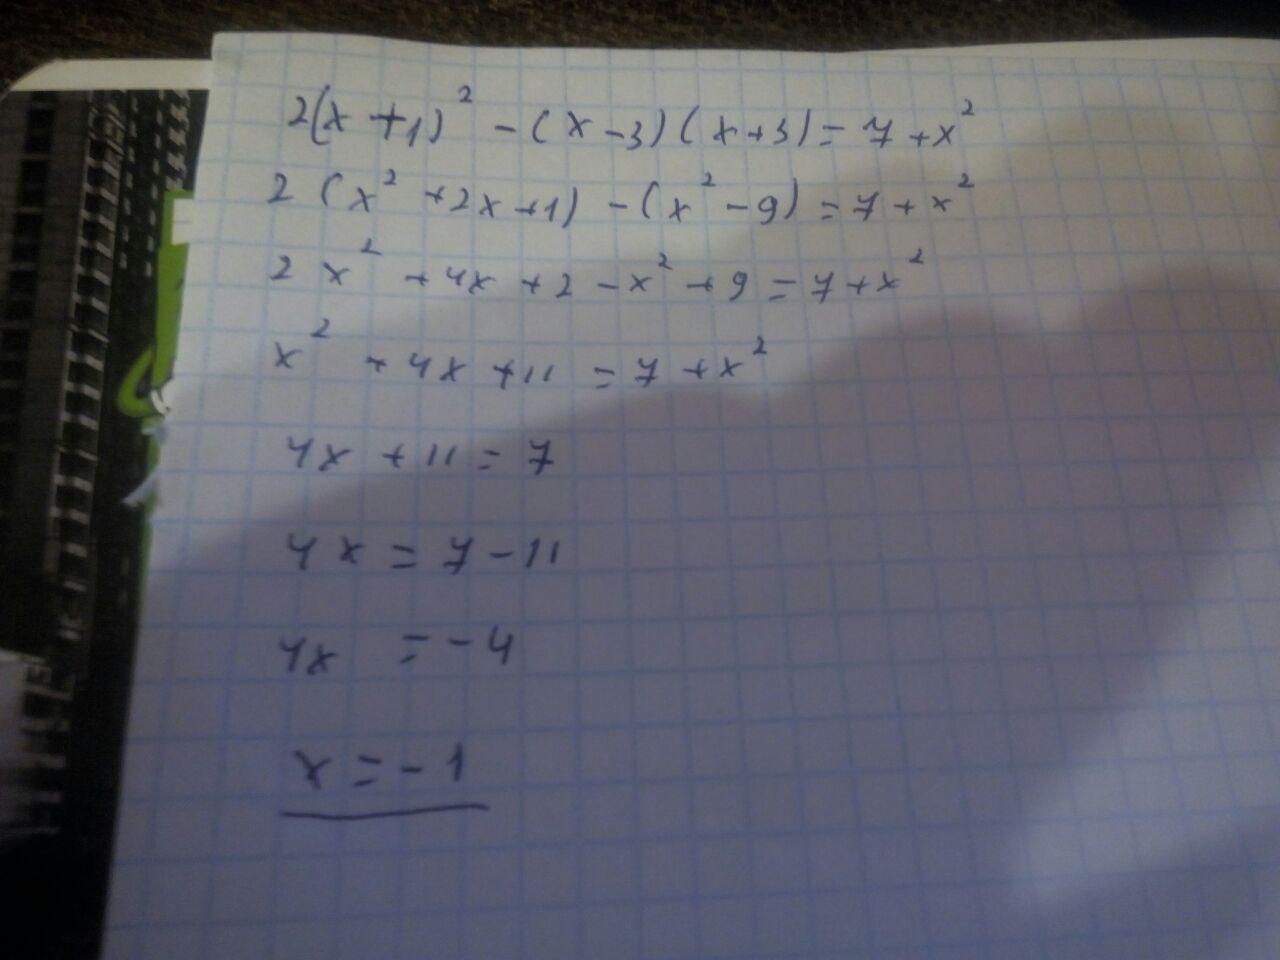 2(x+1)² - (x-3)(x+3) = 7+x²
2(x²+2x+1) - (x²-9) = 7+x²
2x²+4x+2-x²+9 = 7+x²
x²+4x+11 = 7+x²
4x+11 = 7
4x = 7-11
4x = -4
x = -1